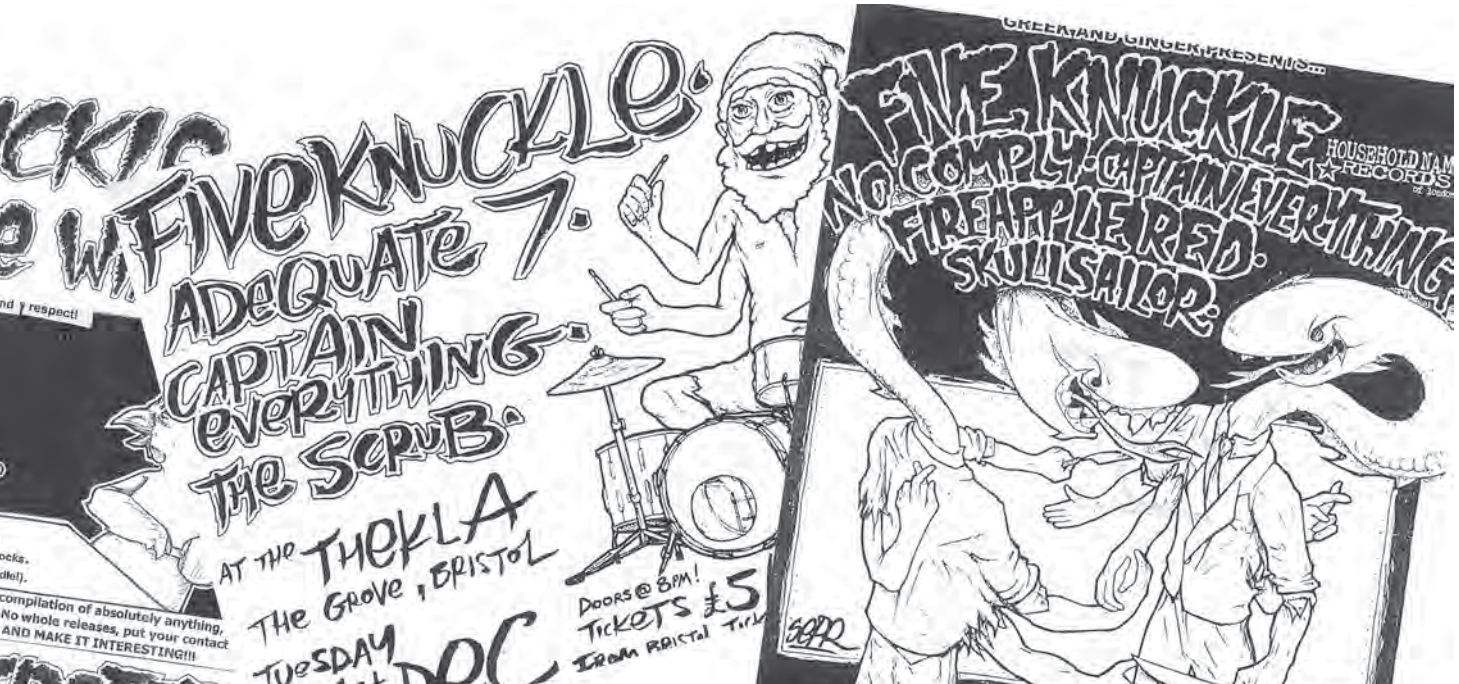 nd respect!
ocks.
dle!).
compilation of absolutely anything,
No whole releases, put your contact
AND MAKE IT INTERESTING!!!
FIVE KNUCKLE.
ADEQUATE 7.
CAPTAIN
EVERYTHING.
THE SCRUB.
AT THE THEKLA
THE GROVE, BRISTOL
TUESDAY
DOORS @ 8PM!
TICKETS £5
FROM BRISTOL
GREEK AND GINGER PRESENTS...
FIVE KNUCKLE
HOUSEHOLD NAM
RECORDS
of london
NO COMPLY. CAPTAIN EVERYTHING.
FIREAPPLE RED.
SKULLSAILOR.